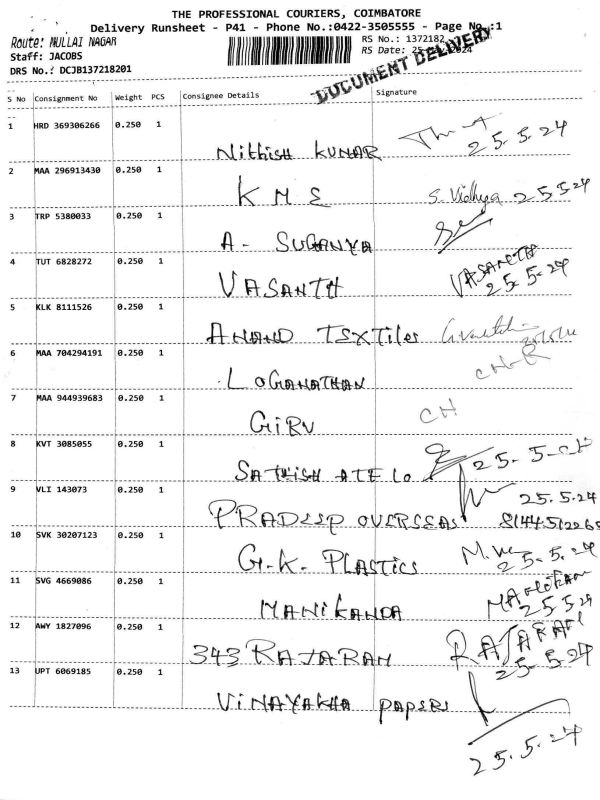 THE PROFESSIONAL COURIERS, COIMBATORE
Delivery Runsheet - P41 - Phone No.:0422-3505555 - Page No.:1
Route: MULLAI NAGAR
RS No.: 1372182
Staff: JACOBS
RS Date: 25
2024
DRS No.: DCJB137218201
DOCUMENT DELIVERY
S No Consignment No Weight PCS Consignee Details Signature
1 HRD 369306266 0.250 1
Nithish KUMAR 25.5.24
2 MAA 296913430 0.250 1
K M E S. Vidhya 25 5 24
3 TRP 5380033 0.250 1
A- SUGANYA
4 TUT 6828272 0.250 1
VASANTH VASANTH
25.5.24
5 KLK 8111526 0.250 1
ANAND TEXTiles
6 MAA 704294191 0.250 1
LOGANATHAN
7 MAA 944939683 0.250 1
GIRU CH
8 KVT 3085055 0.250 1
SATHISH ATE Lo 25.5.24
9 VLI 143073 0.250 1
25.5.24
PRADEEP OVERSEAS
10 SVK 30207123 0.250 1
G.K. PLASTICS 25.5.24
11 SVG 4669086 0.250 1
MANIKANDA 25 5 24
12 AWY 1827096 0.250 1
343 RAJARAM RAJARAM
25.5.24
13 UPT 6069185 0.250 1
VINAYAKHA PAPERS
25.5.24